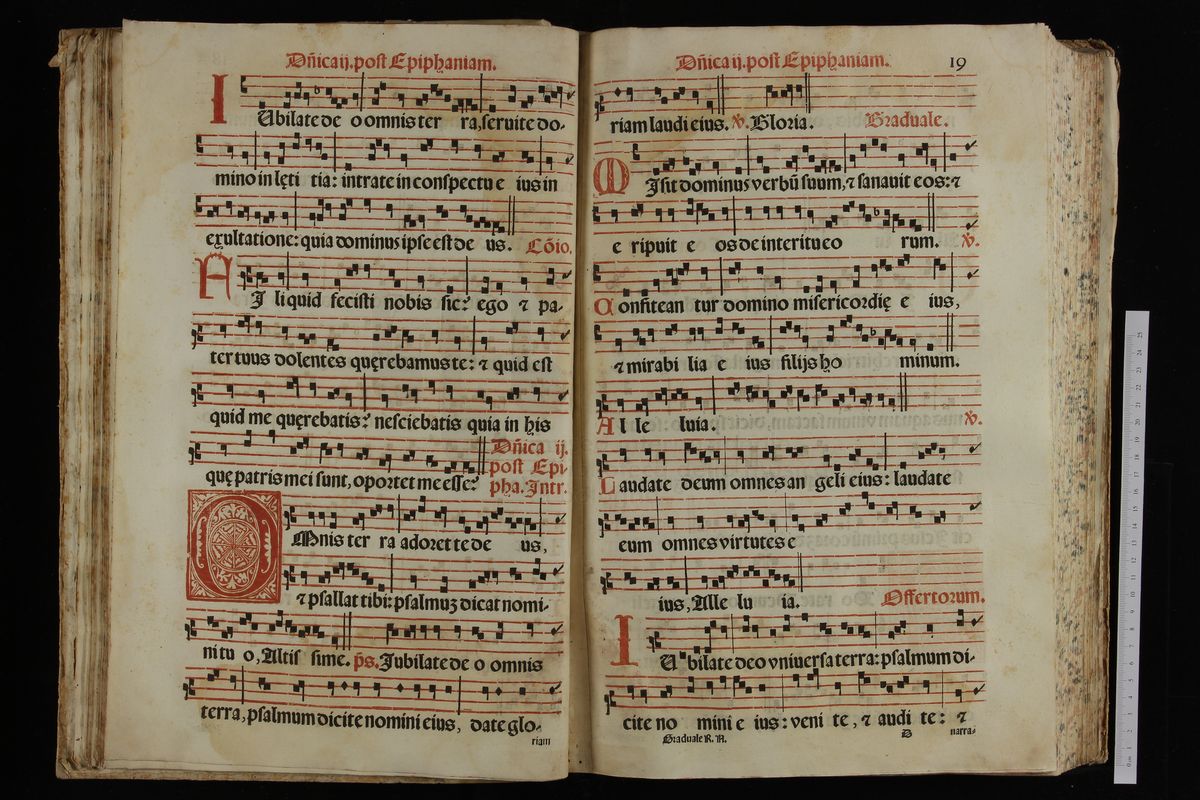 Dñica ij. post Epiphaniam.
IUbilate de o omnis ter ra, seruite do-
mino in lęti tia: intrate in conspectu e ius in
exultatione: quia dominus ipse est de us. Cõio.
FIli quid fecisti nobis sic? ego ⁊ pa-
ter tuus dolentes quęrebamus te: ⁊ quid est
quid me quęrebatis? nesciebatis quia in his
quę patris mei sunt, oportet me esse?
Dñica ij.
post Epi-
pha. Intr.
OMnis ter ra adoret te de us,
⁊ psallat tibi: psalmuȝ dicat nomi-
ni tu o, Altis sime. p̃s. Jubilate de o omnis
terra, psalmum dicite nomini eius, date glo-
riam
Dñica ij. post Epiphaniam. 19
riam laudi eius. ℣. Gloria. Graduale.
MIsit dominus verbũ suum, ⁊ sanauit eos: ⁊
e ripuit e os de interitu eo rum. ℣.
Confitean tur domino misericordię e ius,
⁊ mirabi lia e ius filijs ho minum.
Al le luia. ℣.
Laudate deum omnes an geli eius: laudate
eum omnes virtutes e
ius, Alle lu ia. Offertorum.
IU bilate deo vniuersa terra: psalmum di-
cite no mini e ius: veni te, ⁊ audi te: ⁊
Graduale R. N. D narra-